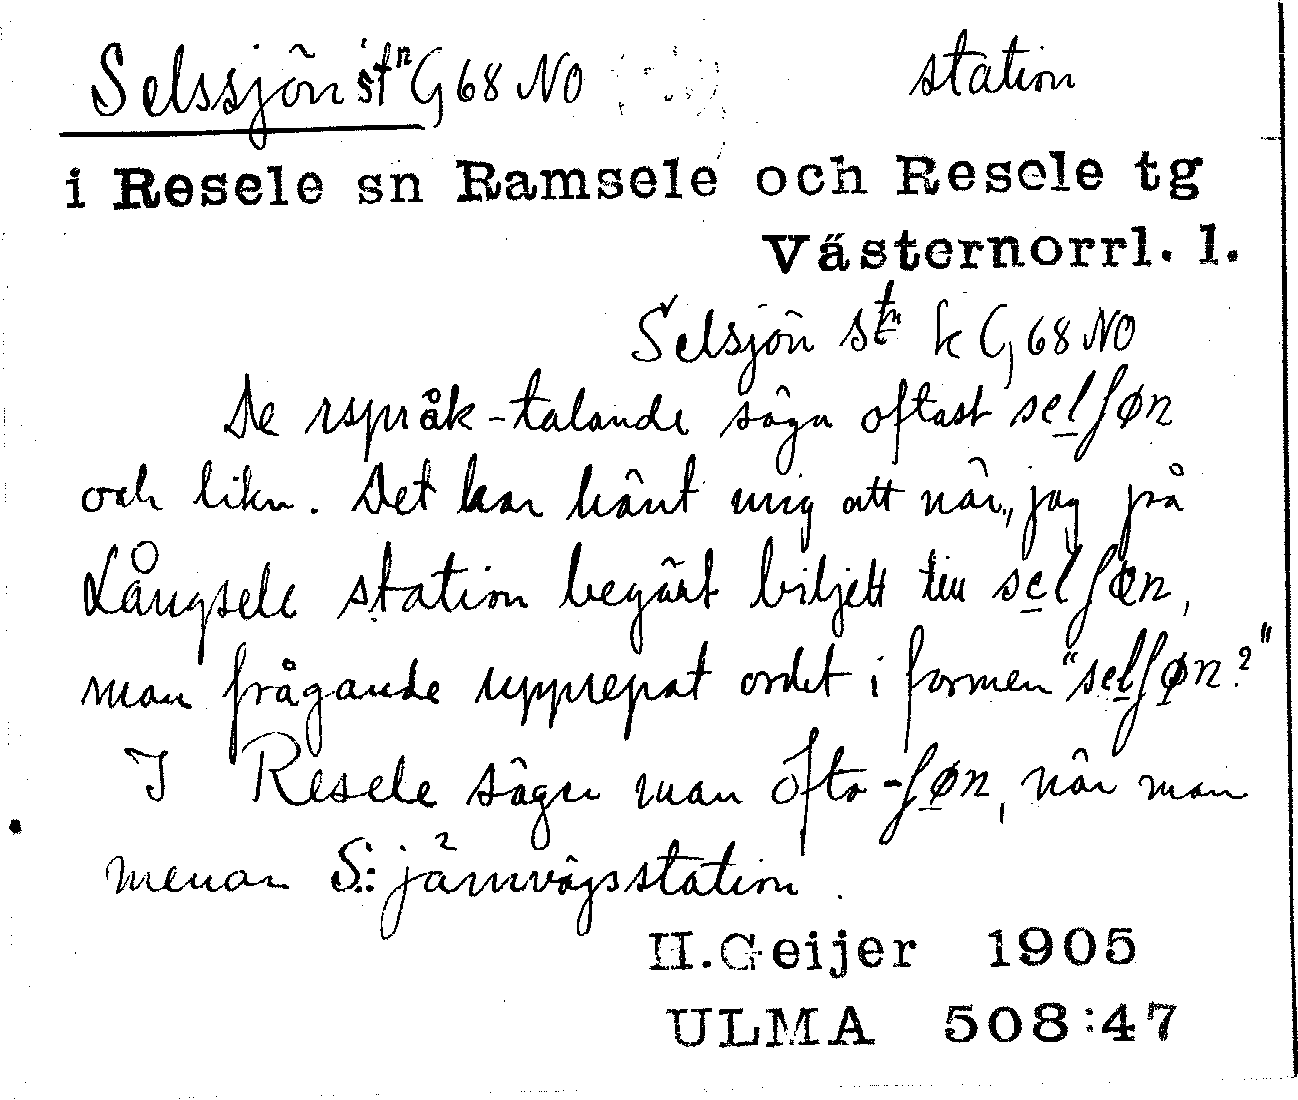 Selssjön stn G68 NO station
i Resele sn Ramsele och Resele tg
Västernorrl. l.
Selsjön stn k G68 NO
De rspråk-talande säga oftast selʃøn
och likn. Det har hänt mig att när, jag på
Långsele station begärt biljett till selʃœn,
man frågande upprepat ordet i formen "selʃøn?"
I Resele säger man ofta -ʃøn, när man
menar S:s järnvägsstation.
H.Geijer 1905
ULMA 508:47